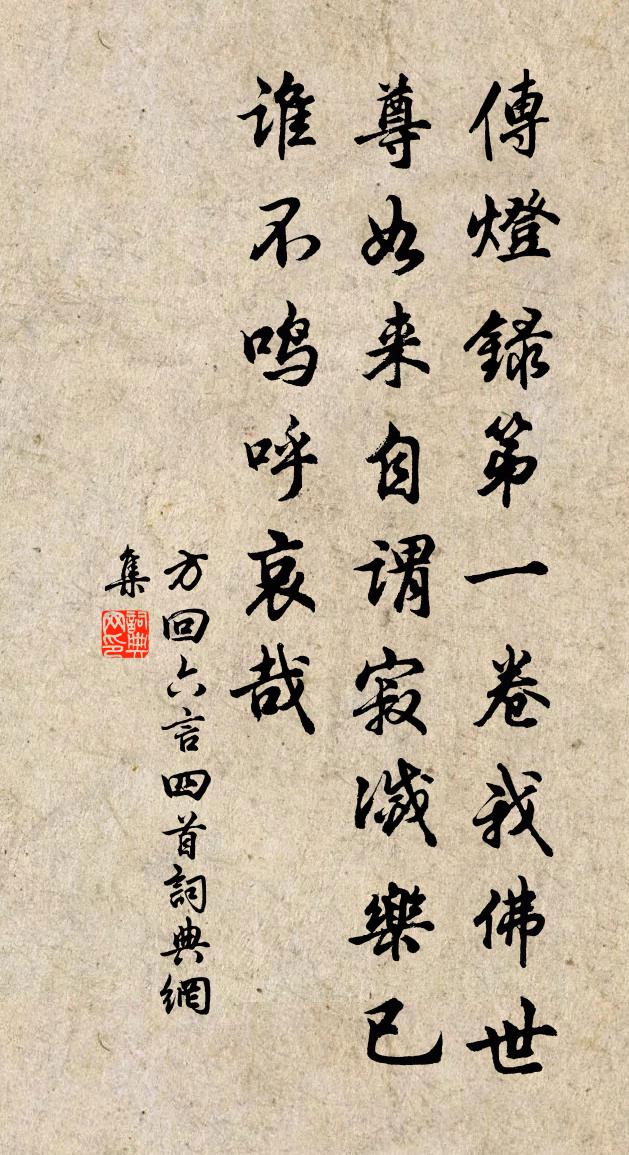 傳燈錄第一卷我佛世
尊如来自謂寂滅樂已
誰不鸣呼哀哉
方回六言四首詞典網
集
詞典网印